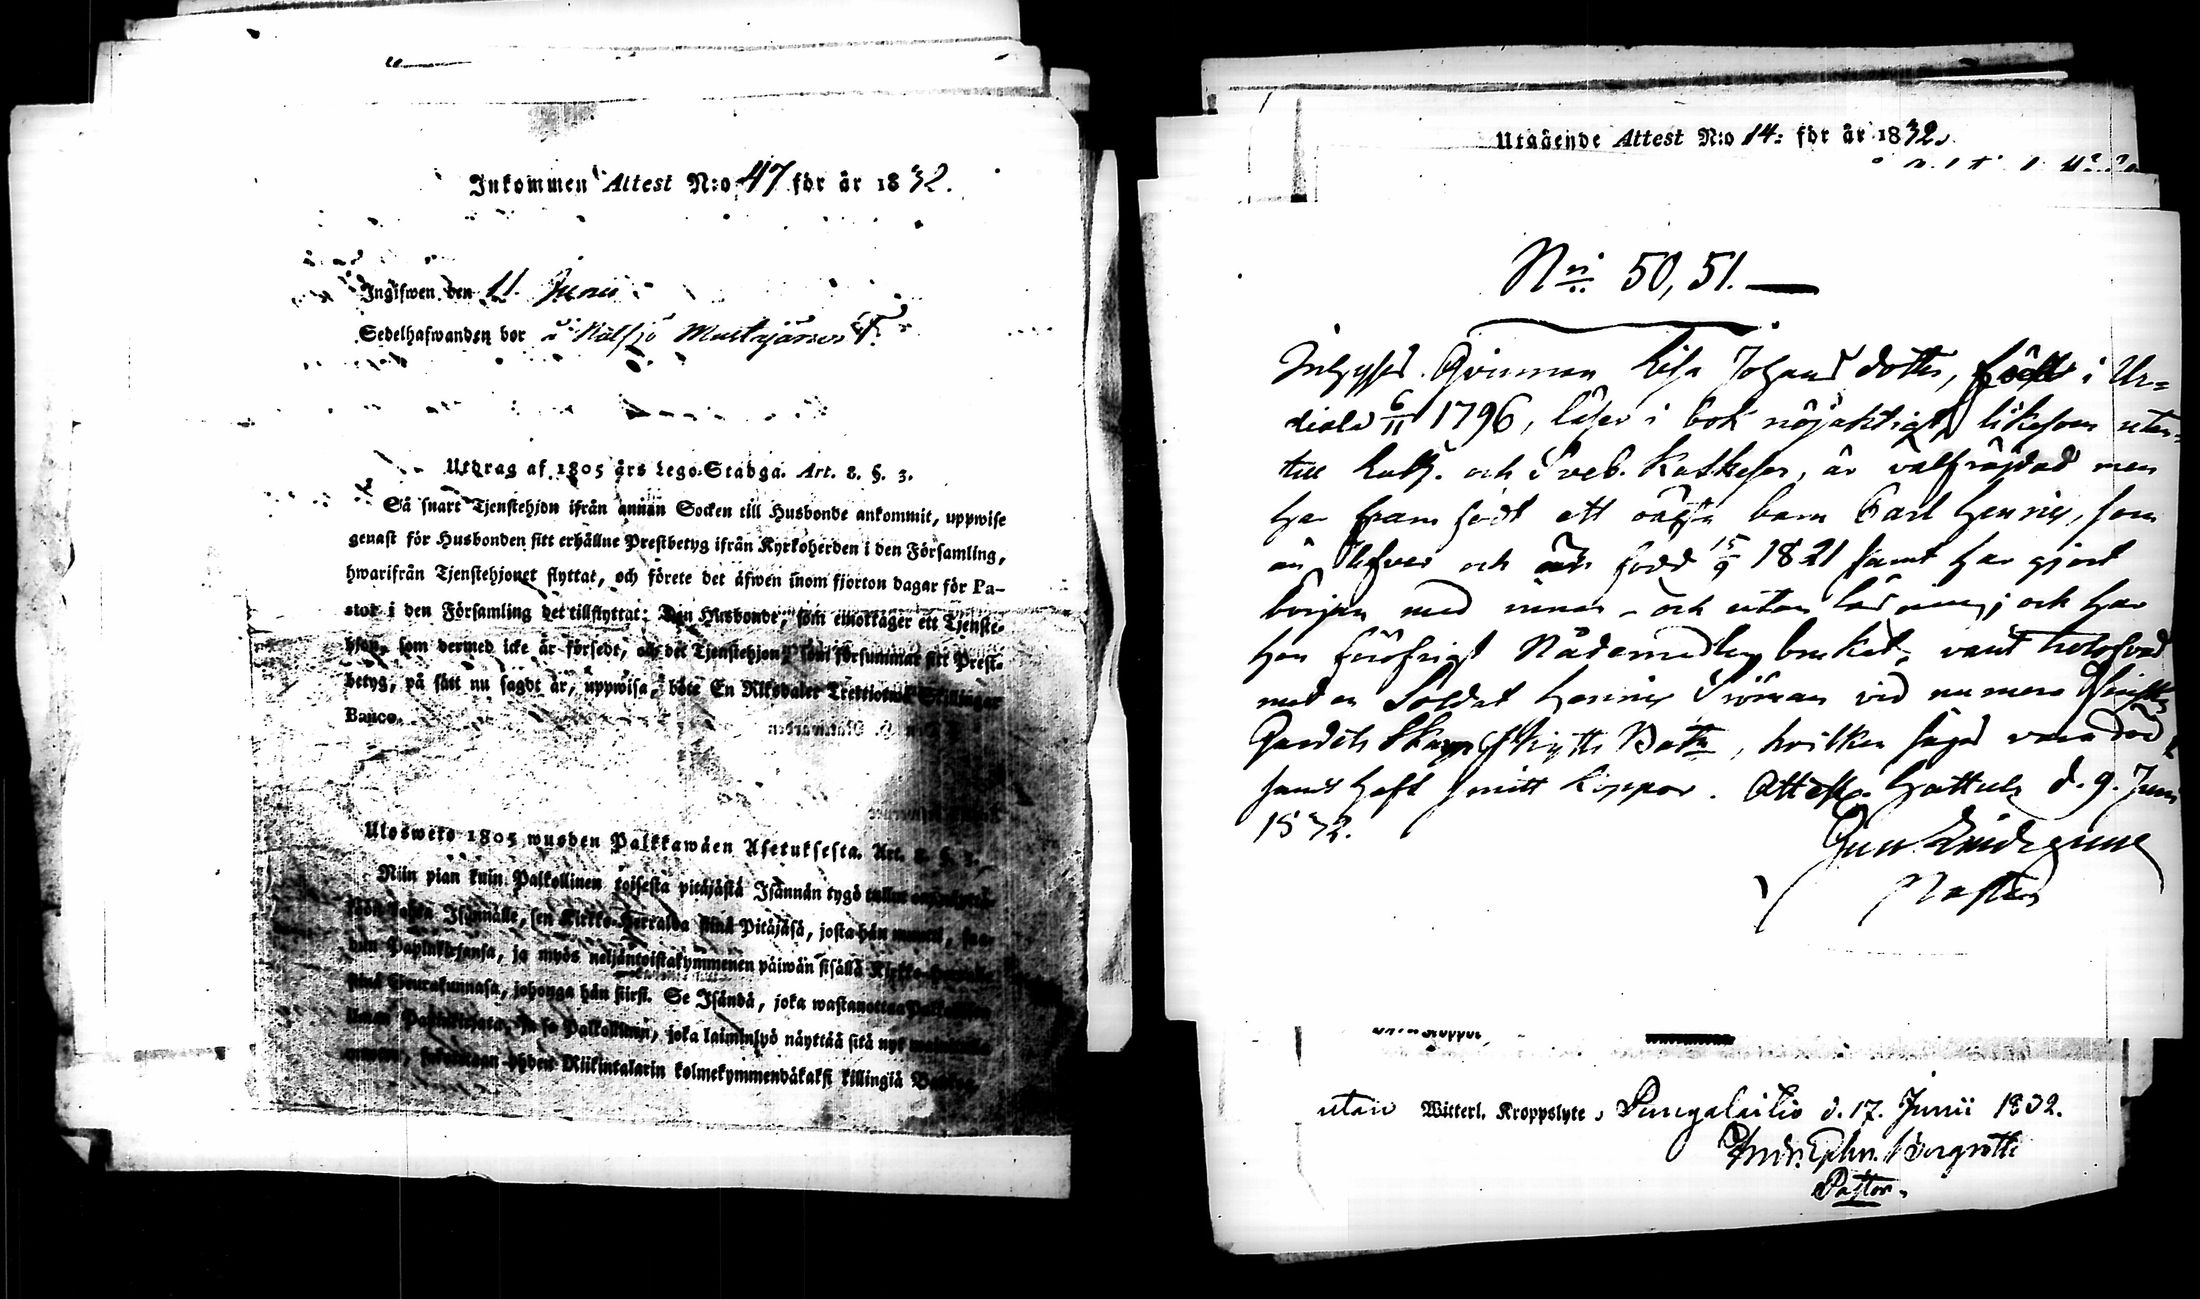 Inkommen Attest N:o 47 för år 1832.
Ingifwen den 11 Junii
Sedelhafwanden bor å
Utdrag af 1805 års Lego-Stadga. Art. 8. §. 3.
Så snart Tjenstehjon ifrån annan Socken till Husbonde ankommit, uppwise
genast för Husbonden sitt erhållne Prestbetyg ifrån Kyrkoherden i den Församling,
hwarifrån Tjenstehjonet flyttat, och förete det äfwen inom fjorton dagar för Pa-
stor i den Församling det tillflyttat: Den Husbonde, som emottager ett Tjenste-
hjon, som dermed icke är försedt, och det Tjenstehjon, som försummar sitt Prest-
betyg, på sätt nu sagdt är, uppwisa, böte En Riksdaler Trettiotwå Skillingar
Banco.
Ulosweto 1805 wuoden Palkkawäen Asetuksesta. Art. 8. §. 3.
Niin pian kuin Palkollinen toisesta pitäjästä Isännän tygö tullut on,
Isännälle, sen Kirkko-Herralda siinä Pitäjäsä, josta hän muutti, saa-
dun Papinkirjansa, ja myös neljäntoistakymmenen päiwän sisällä
siinä Seurakunnasa, johonga hän siirsi. Se Isändä, joka wastanottaa Palkollisen
ilman Papinkirjata, ja se Palkollinen, joka laiminlyö näyttää sitä nyt
yhden Riikintalarin kolmekymmendäkaksi killingiä
Utgående Attest N:o 14: för år 1832.
N:ri 50, 51.
Qvinnan Lisa Johansdotter, född i Ur-
diala 6/11 1796, läser i bok nöjaktigt, likasom utan-
till Luth. och Sveb. Katkeser, är välfräjdad men
har framfödt ett oägta barn Carl Henric, som
än lefver och är född 15/9 1821 samt har gjort
början med innan- och utan läsning; och har
hon föröfrigt Nådemedlen brukat, varit trolofvad
med en Soldat Henric vid numera Finska
Gardets Skarp Skytts Bat:n, hvilken säges vara död
samt haft smitt koppor. Attest. Hattula d. 9. Junii
1832.
Pastor
utan Witterl. Kroppslyte, Pungalaitio d. 17. Junii 1832.
Pastor.